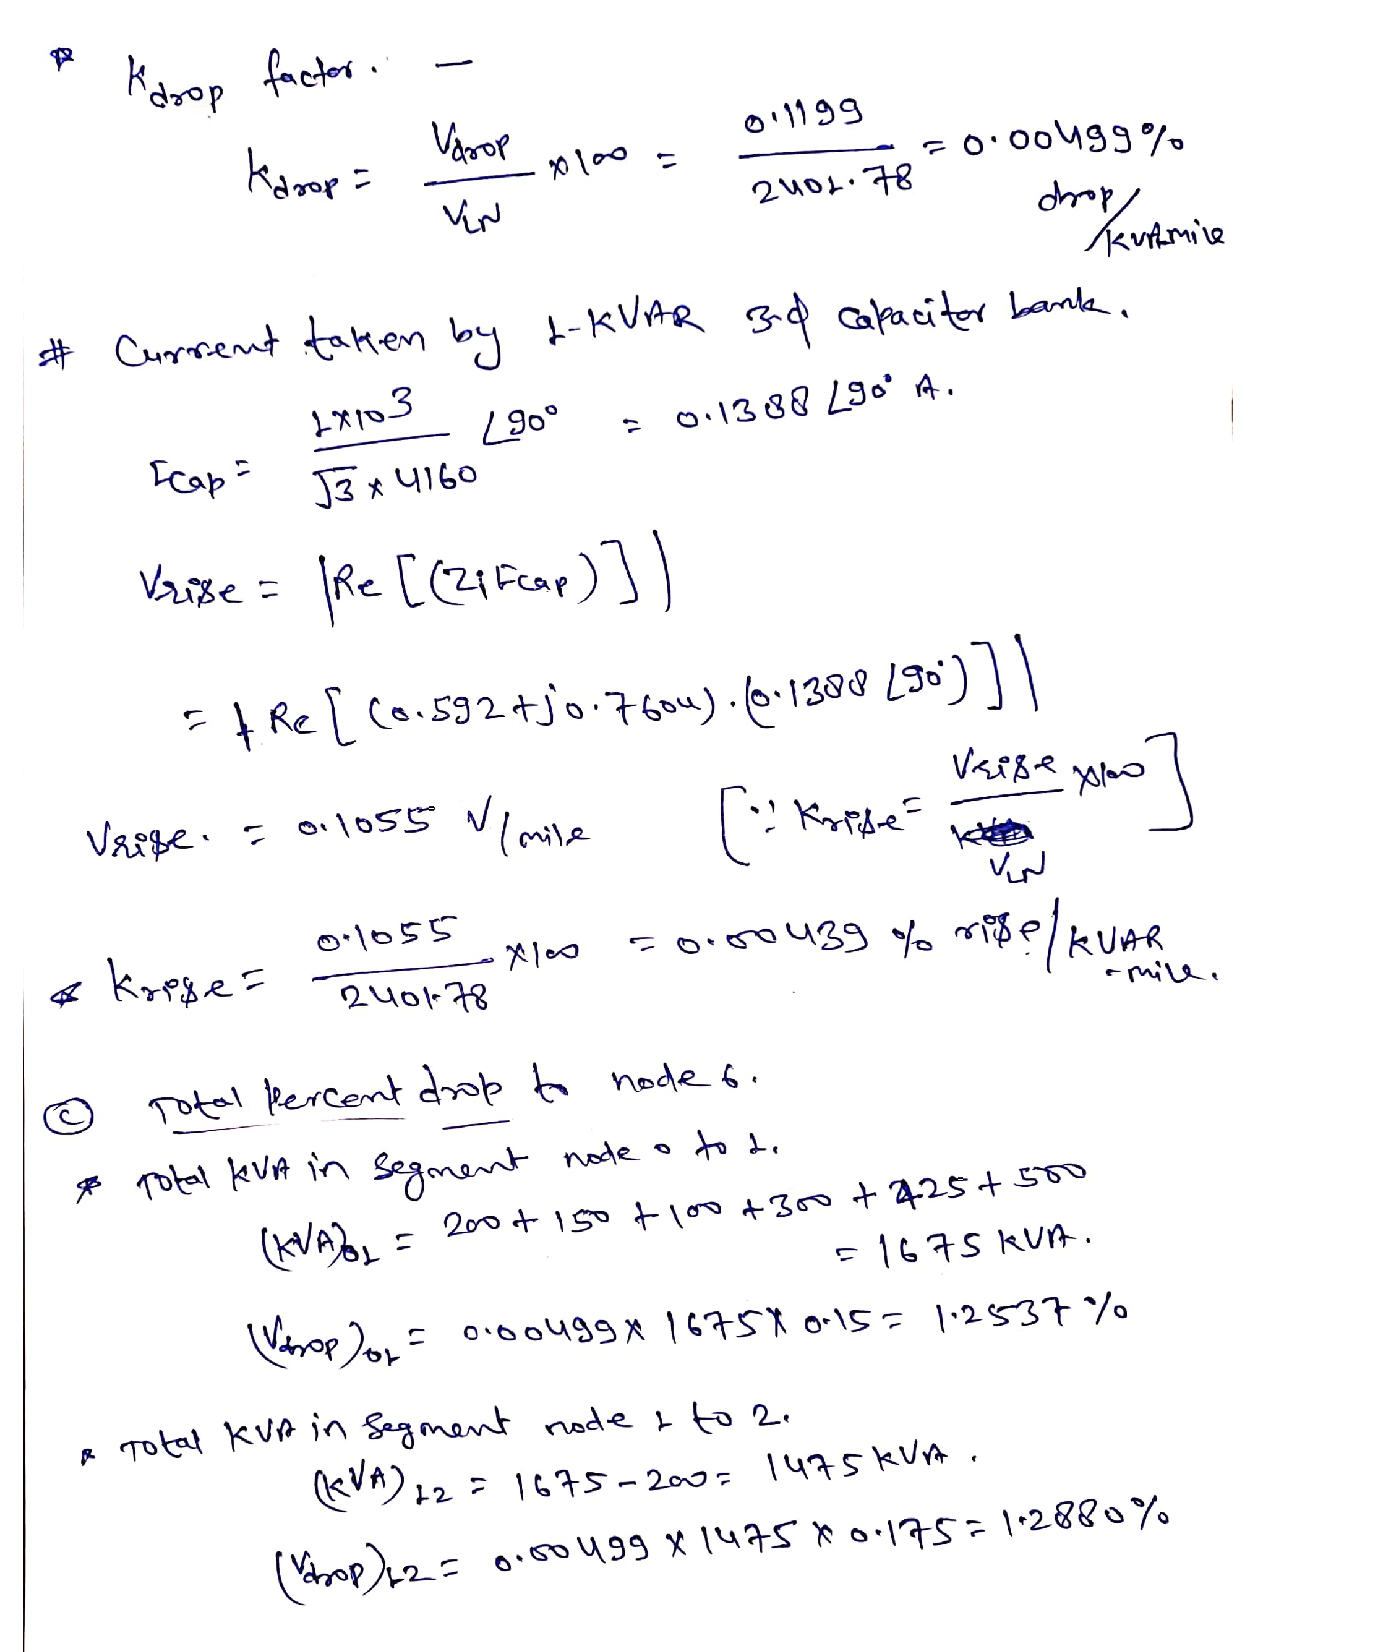 * Kdrop factor. —
Kdrop = Vdrop / VLN × 100 = 0.1199 / 2401.78 = 0.00499 % drop/kVAmile
# Current taken by 1-KVAR 3-ϕ capacitor bank.
Icap = 1×10^3 / √3 × 4160 ∠90° = 0.1388 ∠90° A.
Vrise = |Re [(Z1 Icap)]|
= |Re [(0.592+j0.7604).(0.1388 ∠90°)]|
Vrise. = 0.1055 V/mile [∵ Krise = Vrise / VLN ×100]
* Krise = 0.1055 / 2401.78 ×100 = 0.00439 % rise/KVAR-mile.
(c) Total Percent drop to node 6.
* Total KVA in segment node 0 to 1.
(KVA)01 = 200 + 150 + 100 + 300 + 425 + 500
= 1675 KVA.
(Vdrop)01 = 0.00499 × 1675 × 0.15 = 1.2537 %
* Total KVA in Segment node 1 to 2.
(KVA)12 = 1675 - 200 = 1475 KVA.
(Vdrop)12 = 0.00499 × 1475 × 0.175 = 1.2880 %